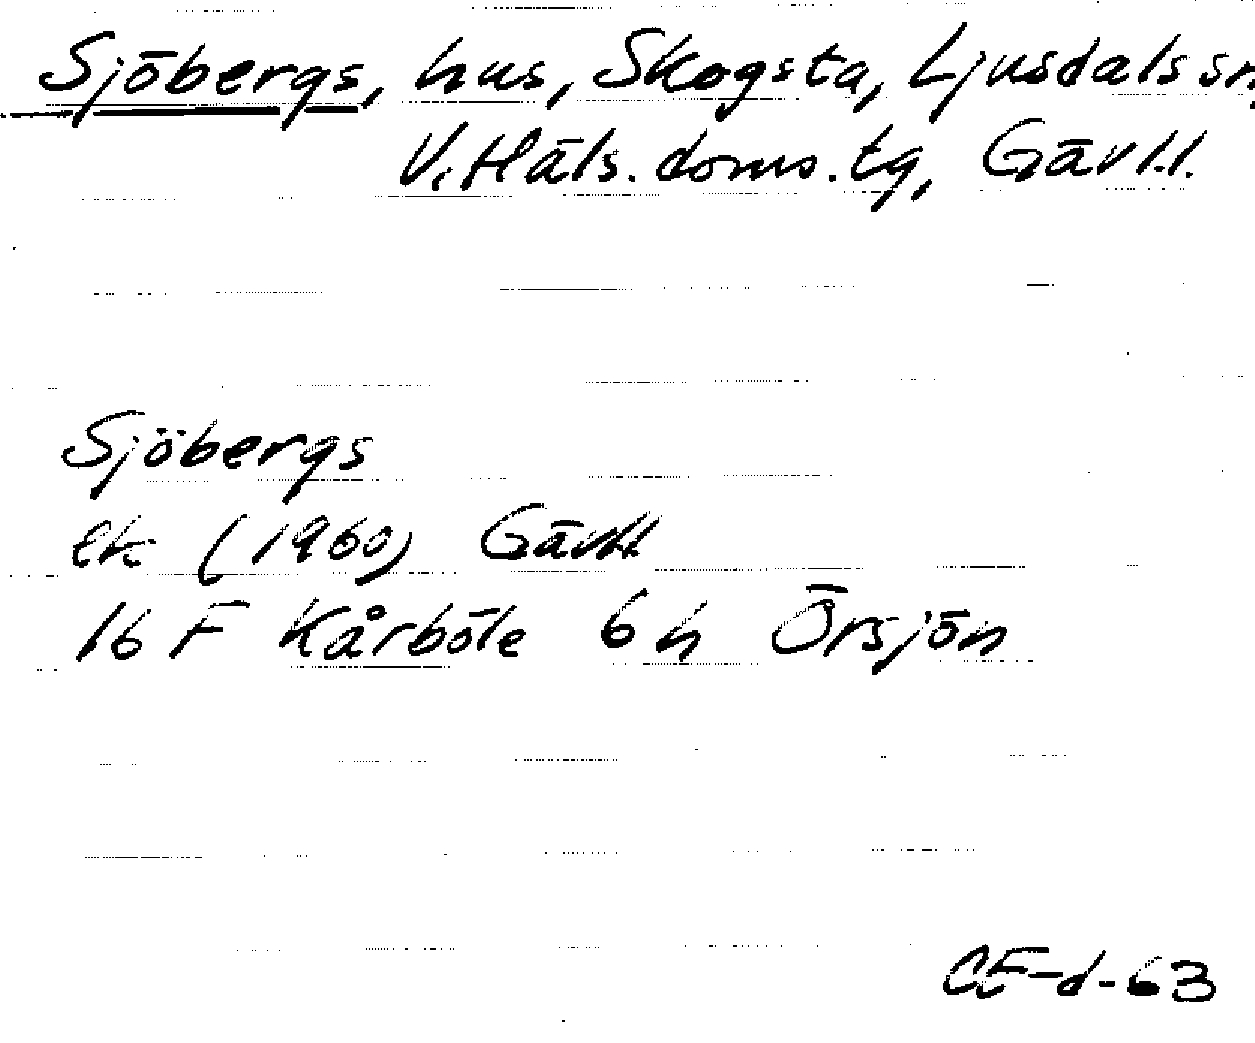 Sjöbergs, hus, Skogsta, Ljusdals sn,
V. Häls. doms. tg, Gävl.l.
Sjöbergs
ek (1960) Gävl.l.
16 F Kårböle 6 h Örsjön
CE-d-63